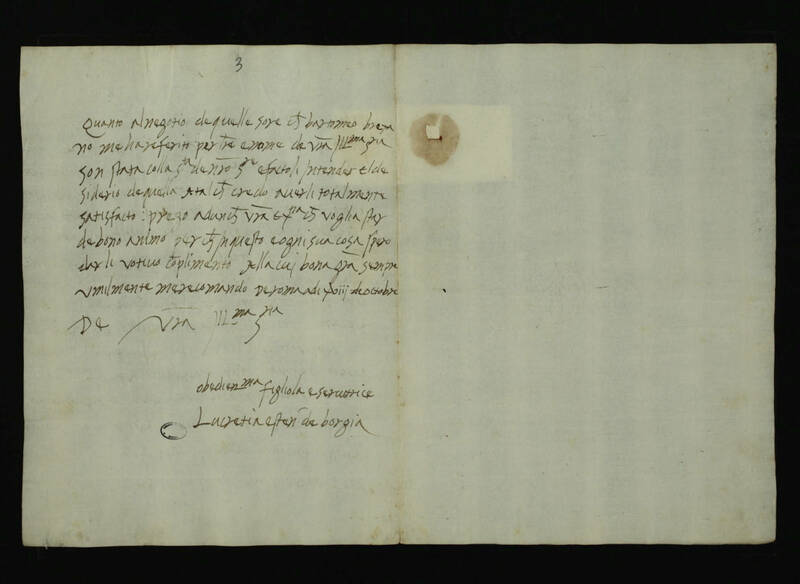 3
Quanto al negotio de quelle sore ch̃ bartomeo bresa
no me ha referito per l̃re e nome de vr̃a Ill.ma Sria
son stata colla Sta de nr̃o Sre e factoli intender el de
siderio de quella Atal ch̃ credo averli totalmente
satisfacto: prego adunch̃ vr̃a Extia ch̃ voglia star
de bono animo per ch̃ in questo e ogni sua cosa spero
darli votivo co͂plimento Alla cui bona gra sempre
umilmente me recomando De roma adi xviij de octobre
De vr̃a Ill.ma Sria
obedien.ma figliola e servitrice
Lucretia esten͂ de borgia